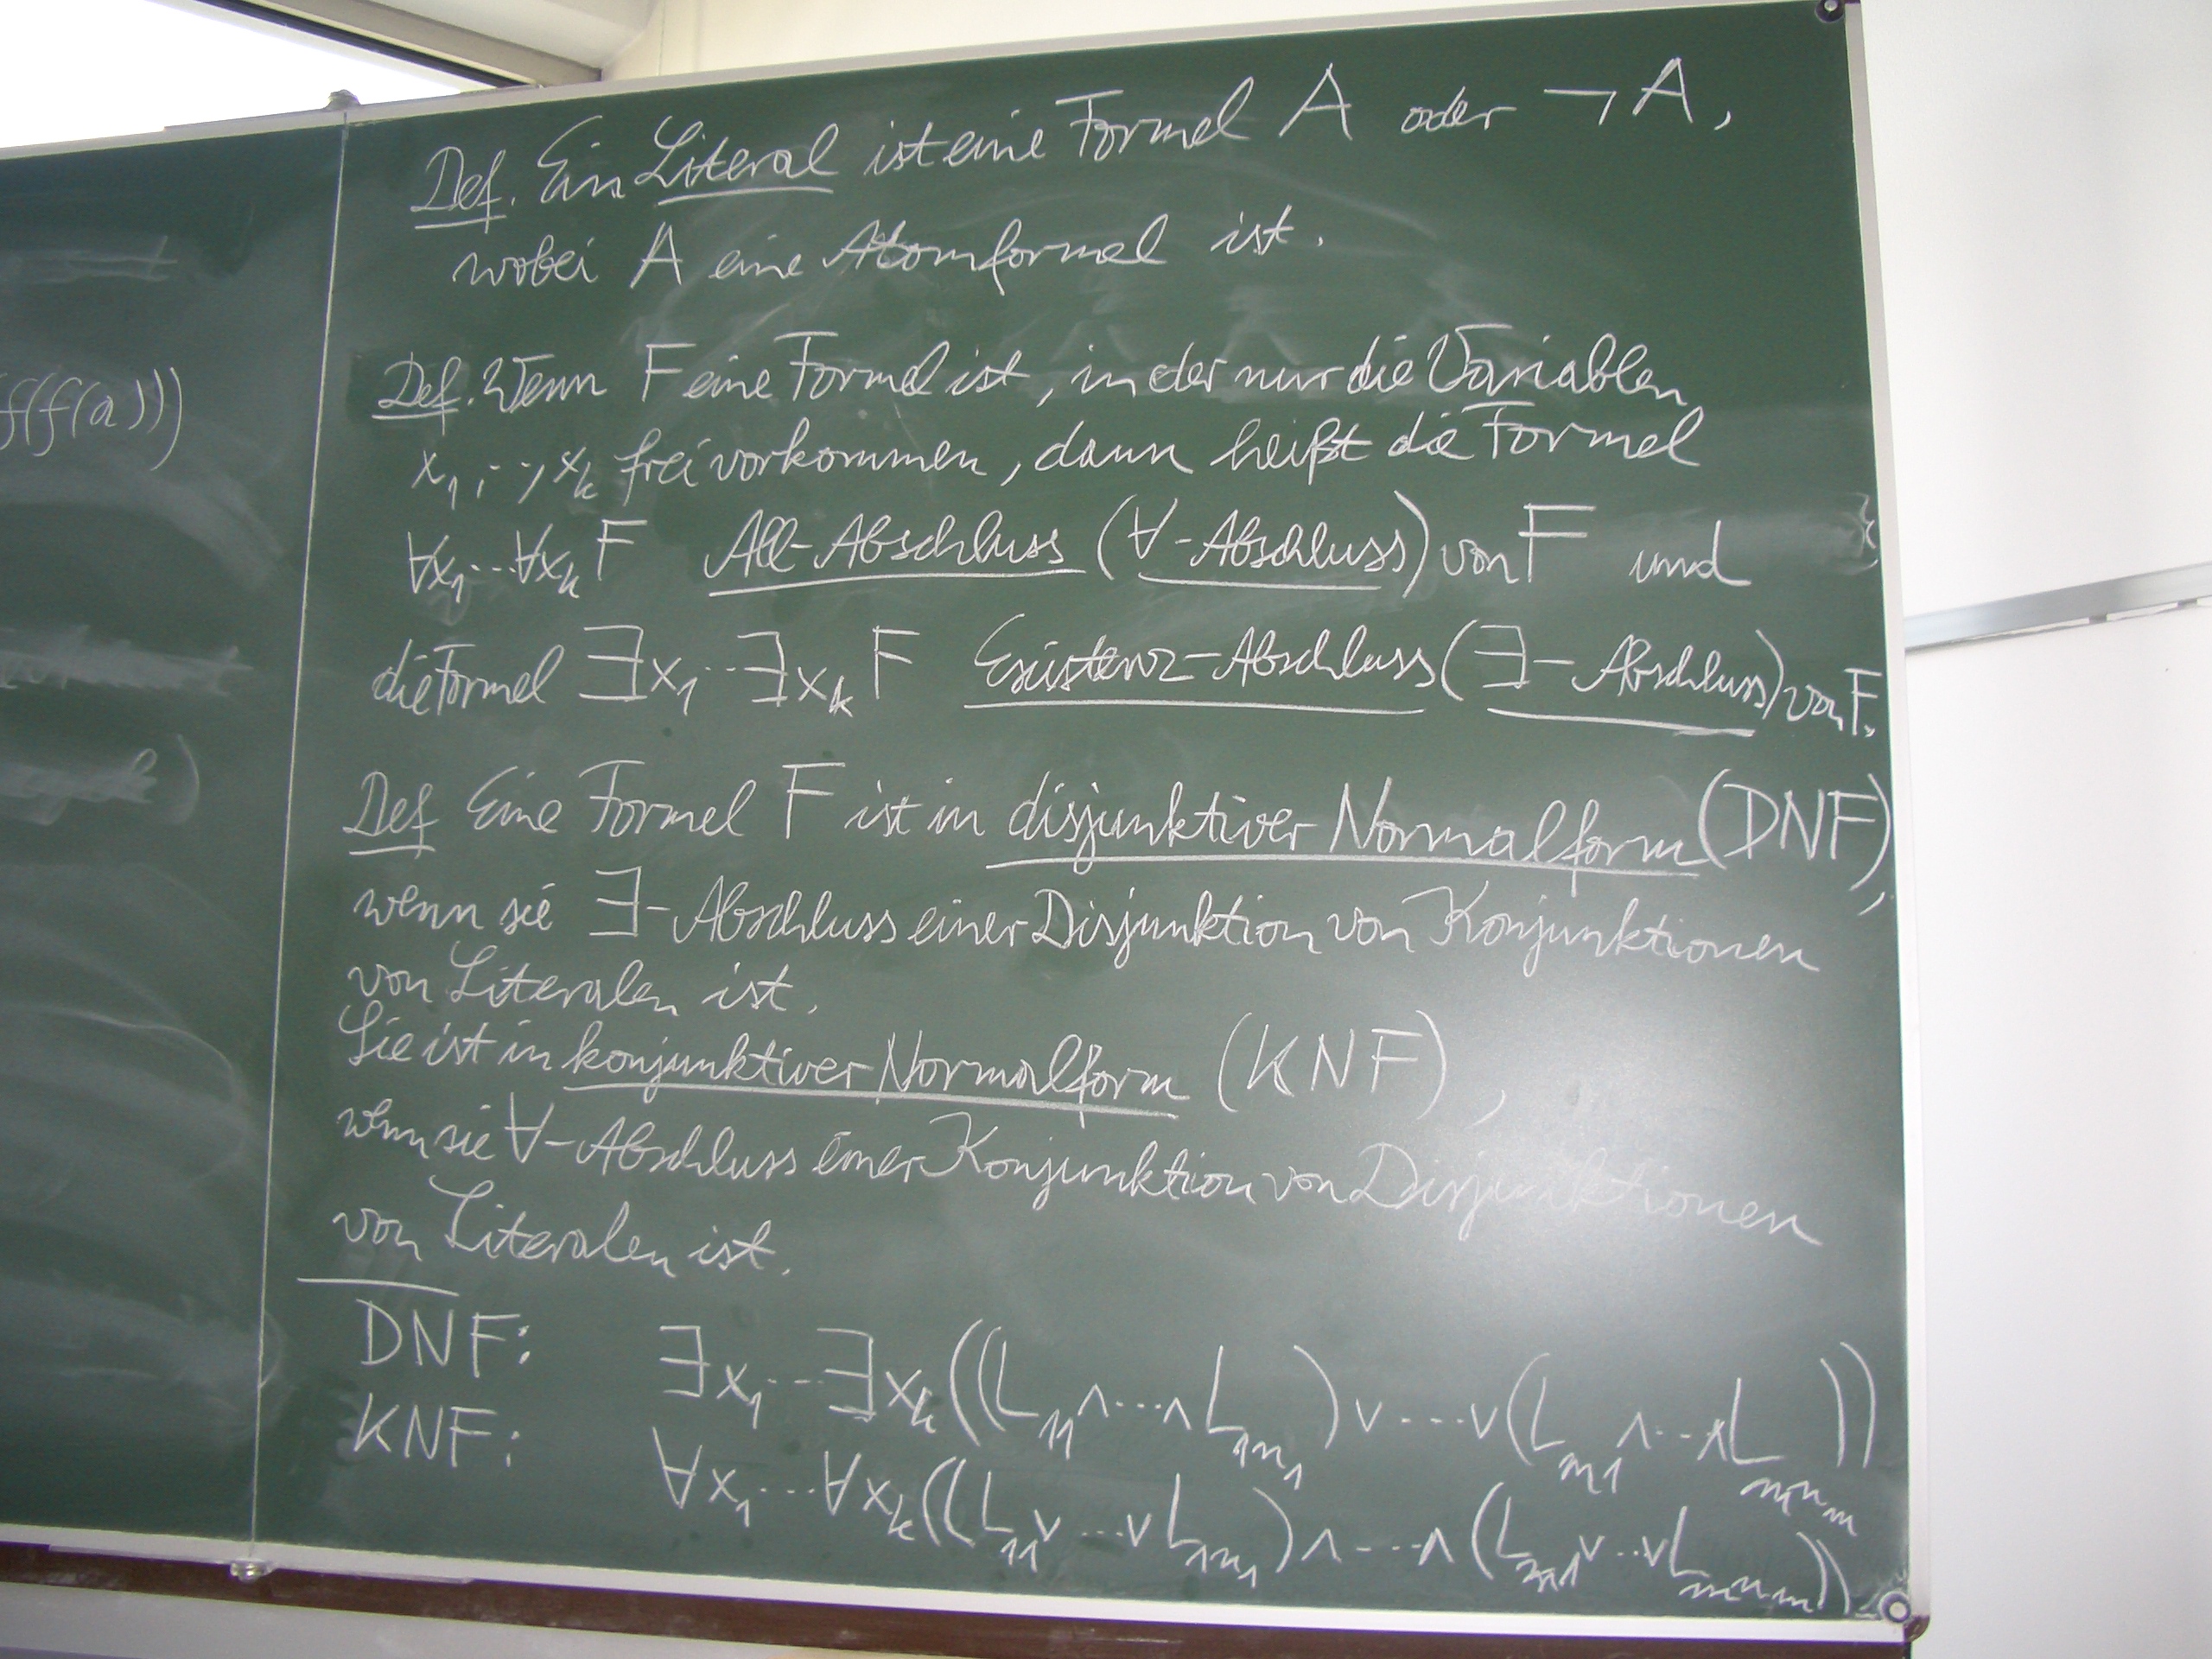 f(f(a)))
Def. Ein Literal ist eine Formel A oder ¬A,
wobei A eine Atomformel ist.
Def. Wenn F eine Formel ist, in der nur die Variablen
x₁, .., xₖ frei vorkommen, dann heißt die Formel
∀x₁...∀xₖ F All-Abschluss (∀-Abschluss) von F und
die Formel ∃x₁...∃xₖ F Existenz-Abschluss (∃-Abschluss) von F.
Def Eine Formel F ist in disjunktiver Normalform (DNF),
wenn sie ∃-Abschluss einer Disjunktion von Konjunktionen
von Literalen ist.
Sie ist in konjunktiver Normalform (KNF),
wenn sie ∀-Abschluss einer Konjunktion von Disjunktionen
von Literalen ist.
DNF: ∃x₁...∃xₖ((L₁₁∧...∧L₁ₙ₁)∨...∨(Lₘ₁∧...∧Lₘₙₘ))
KNF: ∀x₁...∀xₖ((L₁₁∨...∨L₁ₙ₁)∧...∧(Lₘ₁∨...∨Lₘₙₘ))